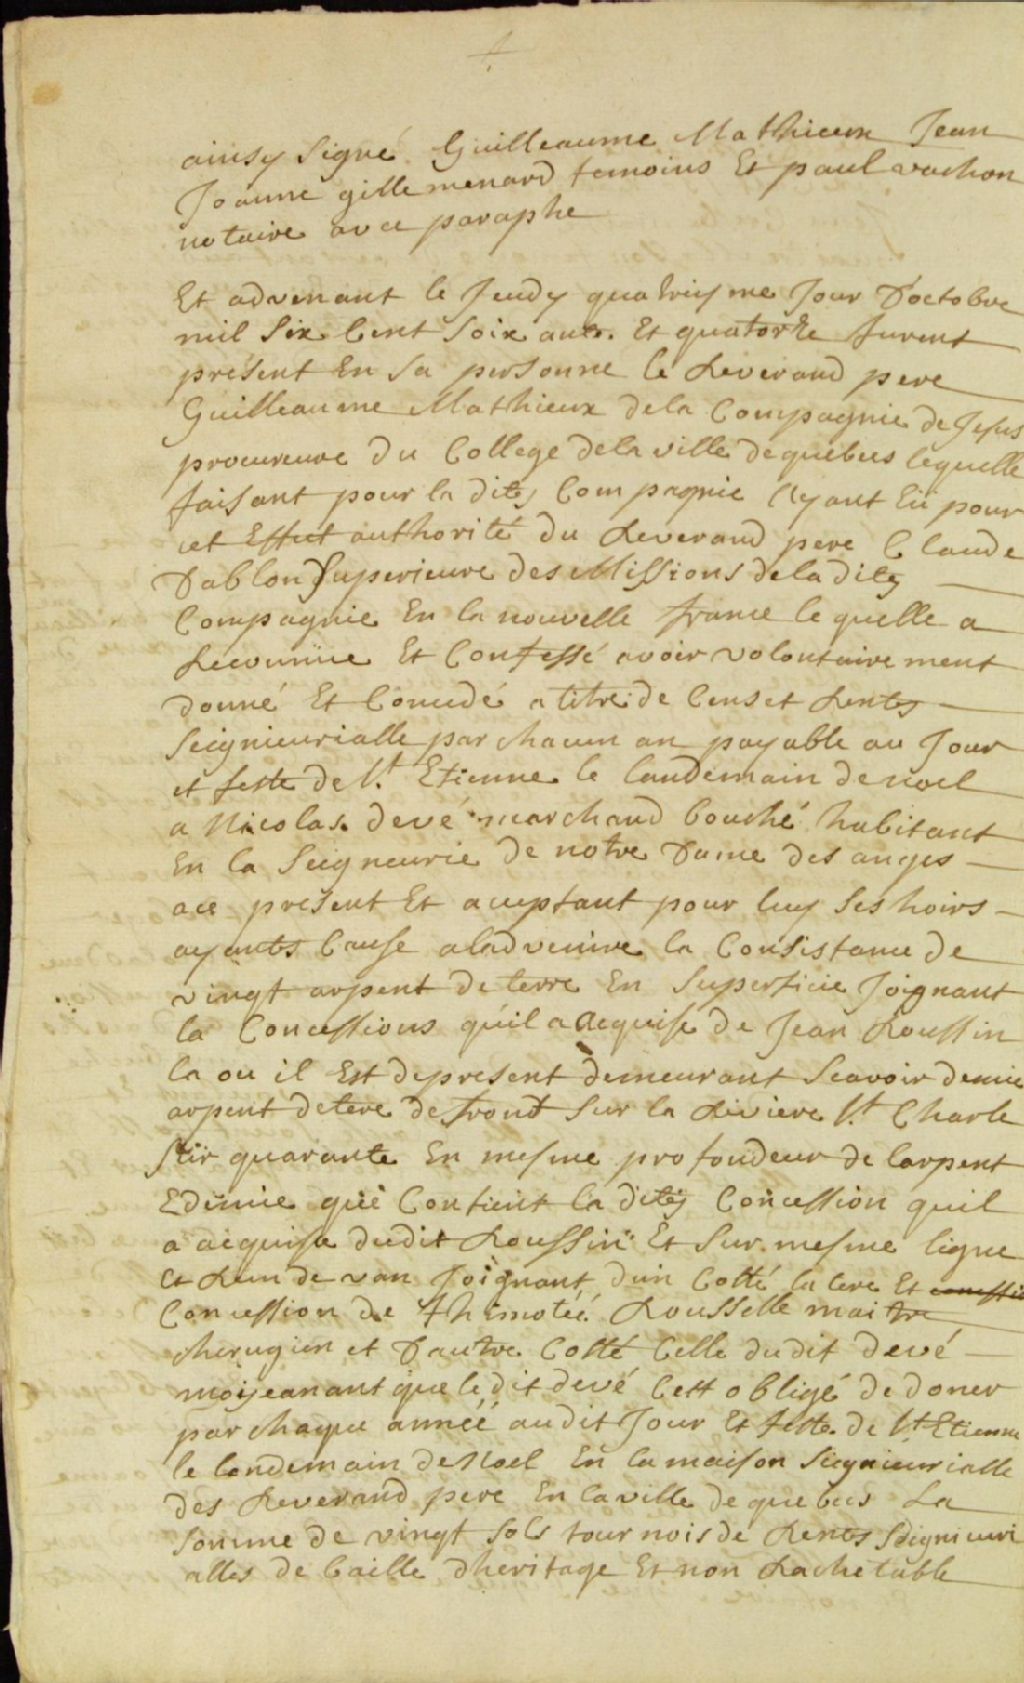 ainsy signé Guilleaume Mathieux Jean
Joanne gille menard temoins Et paul vachon
notaire avec paraphe
Et advenant le Jeudy quatriyme Jour D'octobre
mil Six Cent Soix ante Et quatorze furent
présent En sa personne le Reverand pere
Guilleaume Mathieux dela Compagnie de Jesus
procureure Du College dela ville de quebecs lequelle
faisant pour la ditte Compagnie Ayant Eü pour
cet Effect authorité du Reverand pere Claude
Dablon Superieure des Missions dela ditte
Compagnie En la nouvelle france le quelle a
Reconnüe Et Confessé avoir volontaire ment
donné Et Concedé a titre de Cens et Rentes
Seignieurialle par chacun an payable au Jour
et feste de St. Etienne le landemain de noel
a Nicolas devé marchand bouché habitant
En la Seigneurie de notre Dame des anges
ace présent Et acceptant pour luy Ses hoirs
ayants Cause aladvenire la Consistance de
vingt arpent de terre En Superficie Joignant
la Concessions qu'il a acquise de Jean Roussin
la ou il Est de present demeurant Scavoir demie
arpent de tere de front Sur la Riviere St. Charle
Sür quarante En mesme profondeur de larpent
Edimie que Contient la ditte Concession quil
a acquise dudit Roussin Et Sur mesme ligne
Et Rum de van Joignant d'un Cotté la tere Et
Concession de Thimoteé Rousselle maitre
cherugien et D'autre Cotté Celle du dit devé
moiyeanant que le dit devé Cest obligé de doner
par chaque anneé audit Jour Et feste de St Etienne
le lendemain de Noel En la maison Siegnieurialle
des Reverand pere En la ville de quebecs La
Somme de vingt Sols tournois de Rentes Seignieuri
alles de baille dheritage Et non Rachetable